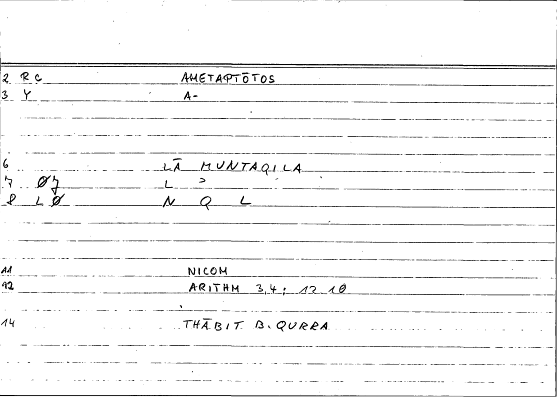 2 RC AMETAPTŌTOS
3 Y A-
6 LĀ MUNTAQILA
7 Ø7 L ɔ
8 LØ N Q L
11 NICOM
12 ARITHM 3,4; 12 10
14 THĀBIT B. QURRA